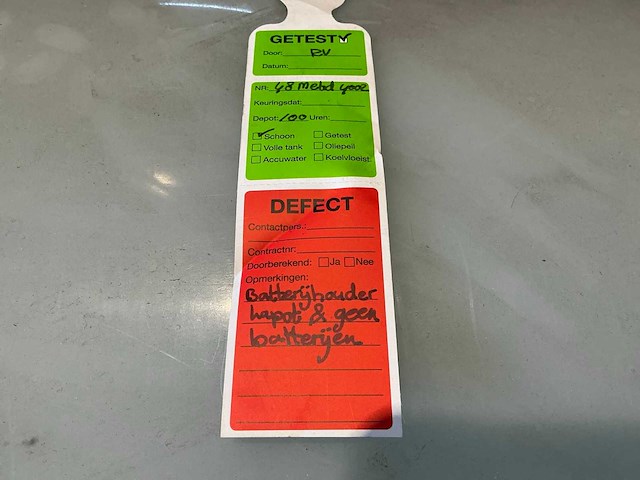 GETEST
Door: RV
Datum:
NR: 48 Metal 4002
Keuringsdat:
Depot: 100 Uren:
Schoon Getest
Volle tank Oliepeil
Accuwater Koelvloeist.
DEFECT
Contactpers.:
Contractnr:
Doorberekend: Ja Nee
Opmerkingen:
Batterijhouder
kapot & geen
batterijen